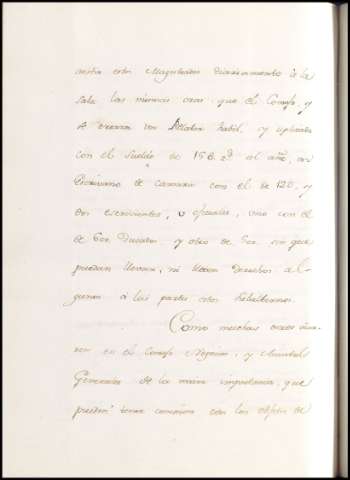 asistan estos Magistrados diariamente à la
Sala las mismas oras que el Consejo, y
se creara un Relator habil, y aplicado
con el sueldo de 15 al año, un
Escrivano de Camara con el de 120, y
dos escrivientes, u oficiales, uno con el
de 600 Ducados y otro de 500 sin que
puedan llevar, ni lleven derechos al-
gunos à las partes estos subalternos.
Como muchas veces ocu-
rren en el Consejo Negocios, y Asuntos
Generales de la maior importancia, que
pueden tener conexion con los objetos de